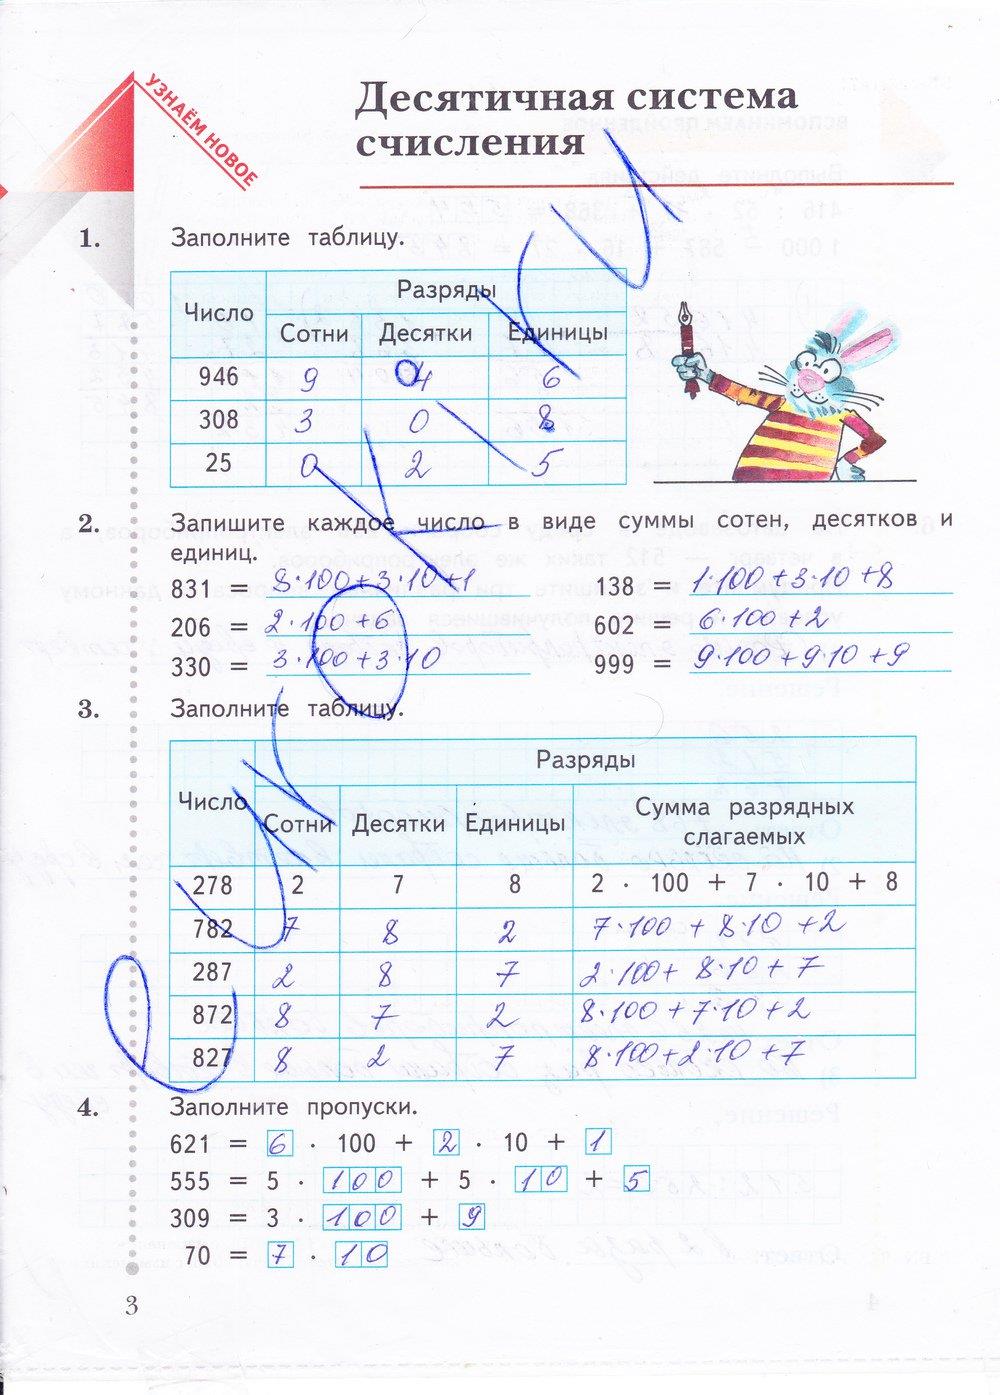 УЗНАЁМ НОВОЕ
Десятичная система
счисления
1. Заполните таблицу.
Число Разряды
Сотни Десятки Единицы
946 9 4 6
308 3 0 8
25 0 2 5
2. Запишите каждое число в виде суммы сотен, десятков и
единиц.
831 = 8·100+3·10+1 138 = 1·100+3·10+8
206 = 2·100+6 602 = 6·100+2
330 = 3·100+3·10 999 = 9·100+9·10+9
3. Заполните таблицу.
Число Разряды
Сотни Десятки Единицы Сумма разрядных
слагаемых
278 2 7 8 2 · 100 + 7 · 10 + 8
782 7 8 2 7·100 + 8·10 +2
287 2 8 7 2·100+ 8·10 + 7
872 8 7 2 8·100 + 7·10 +2
827 8 2 7 8·100+2·10 +7
4. Заполните пропуски.
621 = 6 · 100 + 2 · 10 + 1
555 = 5 · 100 + 5 · 10 + 5
309 = 3 · 100 + 9
70 = 7 · 10
3